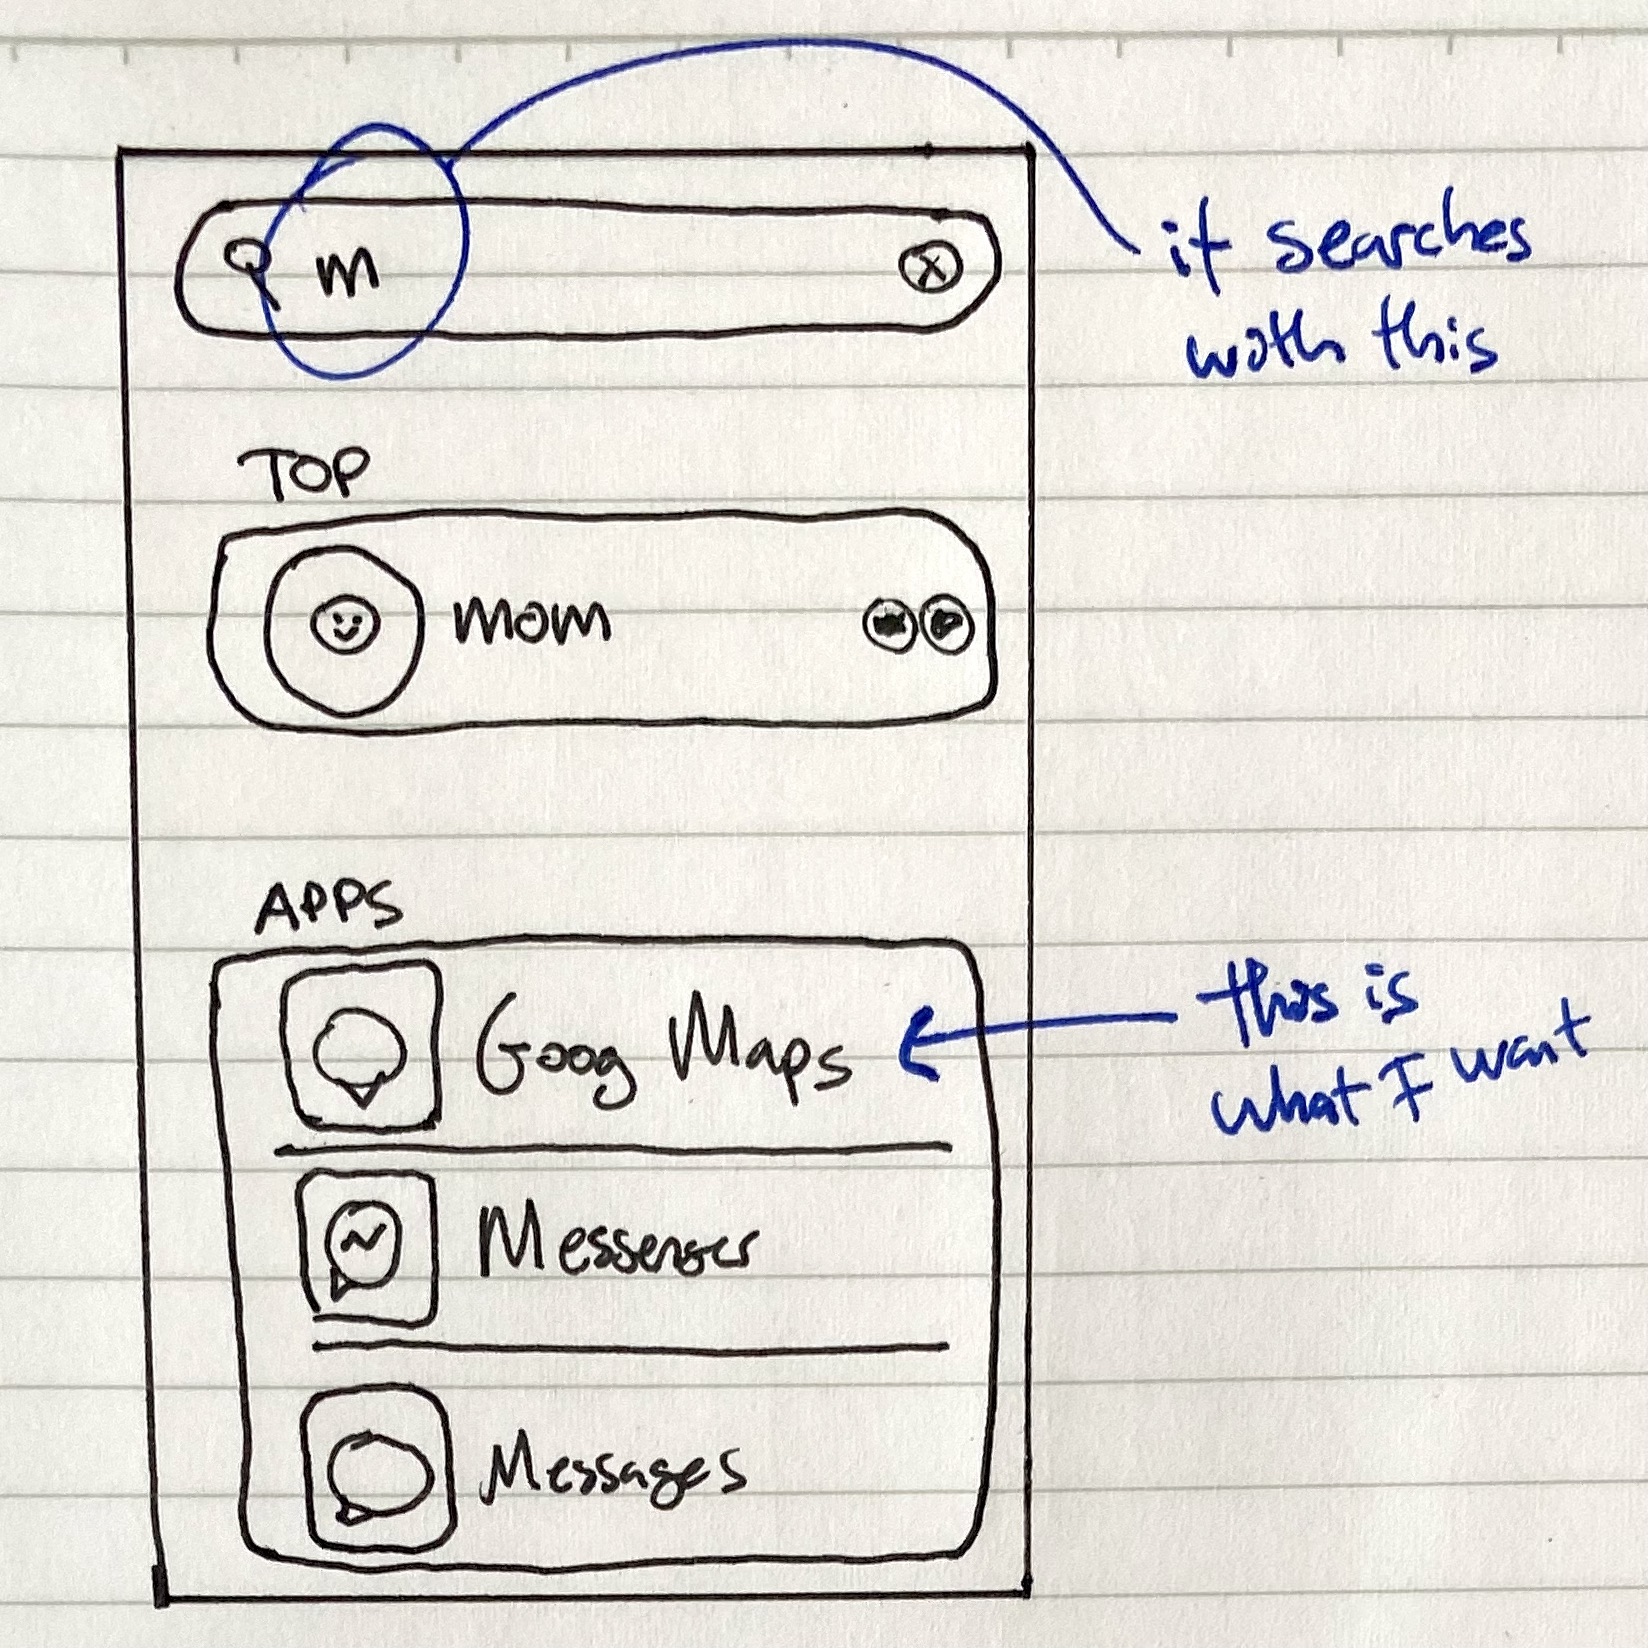 m
X
it searches
with this
TOP
mom
APPS
Goog Maps
this is
what I want
Messenger
Messages